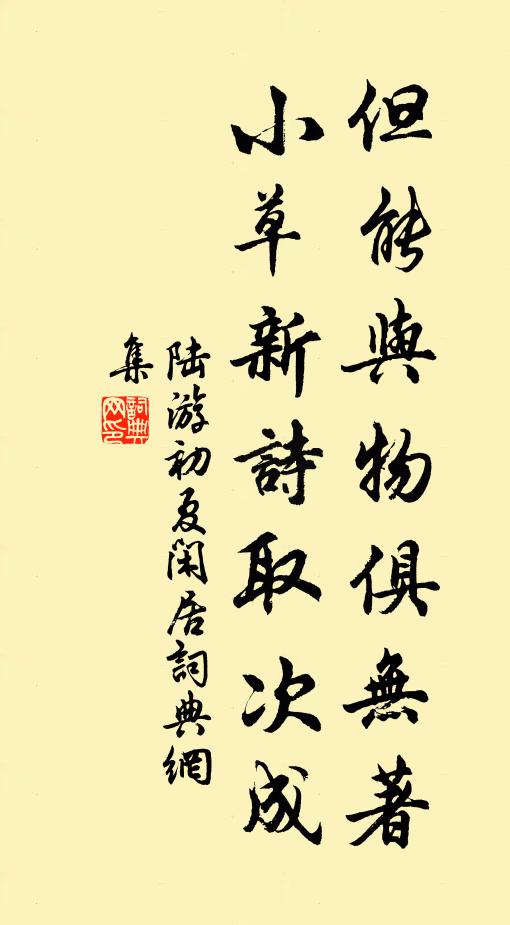 但能與物俱無著
小草新詩取次成
陆游初夏闲居詞典網
集
詞典網印